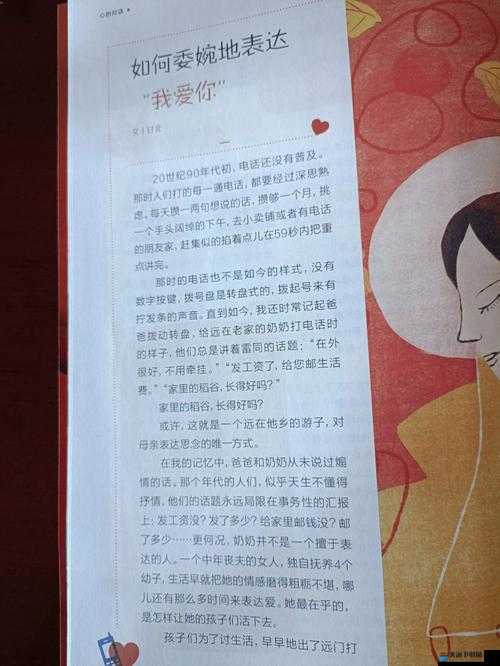 心的对话
如何委婉地表达
“我爱你”
20世纪90年代初，电话还没有普及。
那时人们打的每一通电话，都要经过深思熟
虑。每天攒一两句想说的话，攒够一个月，挑
一个手头阔绰的下午，去小卖铺或者有电话
的朋友家，赶集似的掐着点儿在59秒内把重
点讲完。
那时的电话也不是如今的样式，没有
数字按键，拨号盘是转盘式的，拨起号来有
拧发条的声音。直到如今，我还时常记起爸
爸拨动转盘，给远在老家的奶奶打电话时
的样子，他们总是讲着雷同的话题：“在外
很好，不用牵挂。”“发工资了，给您邮生活
费。”“家里的稻谷，长得好吗？”
家里的稻谷，长得好吗？
或许，这就是一个远在他乡的游子，对
母亲表达思念的唯一方式。
在我的记忆中，爸爸和奶奶从未说过煽
情的话。那个年代的人们，似乎天生不懂得
抒情，他们的话题永远局限在事务性的汇报
上：发工资没？发了多少？给家里邮钱没？邮
了多少……更何况，奶奶并不是一个擅于表
达的人。一个中年丧夫的女人，独自抚养4个
幼子，生活早就把她的情感磨得粗粝不堪，哪
儿还有那么多时间来表达爱。她最在乎的，
是怎样让她的孩子们活下去。
孩子们为了讨生活，早早地出了远门打